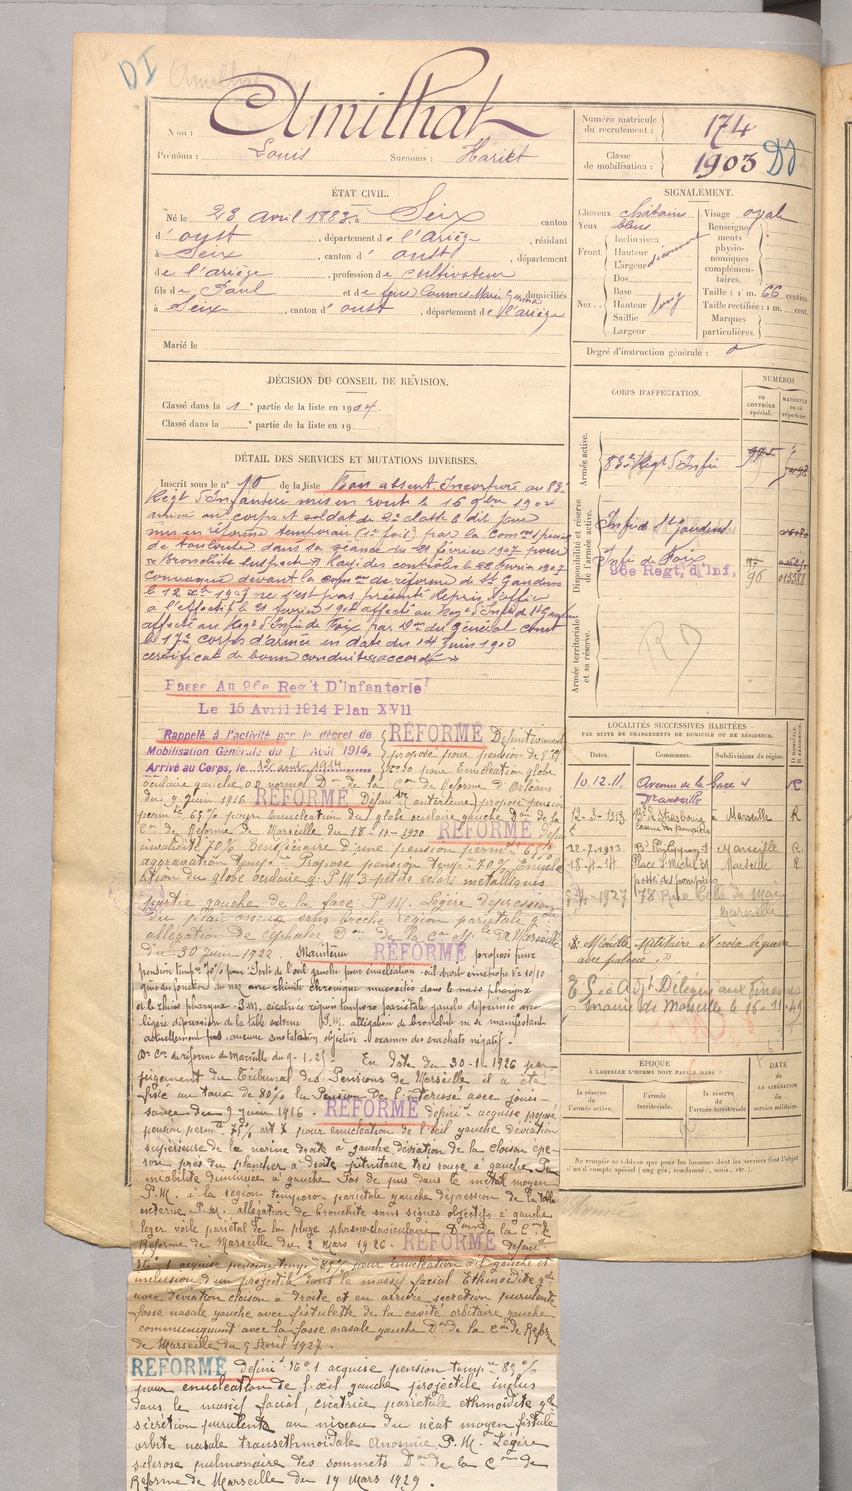 DI
Nom : Amilhat
Prénoms : Louis Surnoms : Hariet
Numéro matricule du recrutement : 174
Classe de mobilisation : 1903
ÉTAT CIVIL.
Né le 23 avril 1883, à Seix canton
d' oust, département de l'ariège, résidant
à Seix, canton d' oust, département
de l'ariège, profession de cultivateur
fils de Paul et de domiciliés
à Seix, canton d' oust, département de l'ariège
Marié le
SIGNALEMENT.
Cheveux châtains
Yeux bleus
Front. Inclinaison
Hauteur
Largeur
Nez. Dos
Base
Hauteur
Saillie
Largeur
Visage oval
Renseignements physionomiques complémentaires.
Taille : 1 m. 66 centim.
Taille rectifiée : 1 m. cent.
Marques particulières.
Degré d'instruction générale :
DÉCISION DU CONSEIL DE RÉVISION.
Classé dans la 1e partie de la liste en 1904.
Classé dans la e partie de la liste en 19
CORPS D'AFFECTATION.
NUMÉROS
AU CONTRÔLE spécial.
MATRICULE OU AU répertoire.
Armée active.
83e Regt d'Infie
Disponibilité et réserve de l'armée active.
Infie de St Gaudens
Infie de Foix
96e Regt, d'Inf, 96 015588
Armée territoriale et sa réserve.
RD
DÉTAIL DES SERVICES ET MUTATIONS DIVERSES.
Inscrit sous le n° 10 de la liste Bon absent Incorporé au 83e
Regt d'Infanterie mis en route le 16 9bre 1904
arrivé au corps et soldat de 2e classe le dit jour
mis en réforme temporaire (1re fois) par la Comon spéciale
de Toulouse dans la séance du 21 février 1907 pour
"Bronchite suspecte" Rayé des contrôles le 22 février 1907
Convoqué devant la comon de réforme de St Gaudens
le 12 Xbre 1907 ne s'est pas présenté Repris d'office
à l'effectif le 21 février 1908 affecté au Regt d'Infie de St Gaudens
affecté au Regt d'Infie de Foix par Don du général comt
le 17e corps d'armée en date du 14 juin 1900
certificat de bonne conduite accordé
Passé Au 96e Reg't D'Infanterie
Le 15 Avril 1914 Plan XVII
Rappelé à l'activité par le décret de
Mobilisation Générale du 1er Août 1914,
Arrivé au Corps, le 12 août 1914
RÉFORMÉ Définitivement
proposé pour pension de
pour Enucléation globe
oculaire gauche Don de la Con de Réforme d'Orléans
du 9 Juin 1916 RÉFORMÉ Définitive antérieure proposé pension
permte 65% pour Enucléation du globe oculaire gauche Don de la
Con de Réforme de Marseille du 18-11-1920 RÉFORMÉ défve
invalidité 70% Bénéficiaire d'une pension permte 65%
aggravation tempre Propose pension tempre 70% Enuclé
ation du globe oculaire g. P.M. 3 petits éclats métalliques
partie gauche de la face P.M. Légère dépression
du plan osseux sans brèche région pariétale gche
allégation de céphalée Don de la Con Sple de Marseille
du 30 Juin 1922. Maintenu RÉFORMÉ proposé pour
pension tempre 70% pour perte de l'œil gauche par énucléation - œil droit emmétrope V=10/10
avec rhinite chronique mucosités dans le naso pharynx
et le rhino pharynx. P.M. cicatrice région temporo pariétale gauche déprimée avec
légère dépression de la table externe P.M. allégation de bronchite ne se manifestant
actuellement par aucune constatation objective. examen des crachats négatif.
Don Con de réforme de Marseille du 9-1-25 En date du 30-1-1926 par
jugement du Tribunal des Pensions de Marseille il a été
fixé au taux de 80% la Pension de l'intéressé avec jouis
sance du 9 juin 1916. RÉFORMÉ définif acquise proposé
pension permte 75% art 7 pour énucléation de l'œil gauche déviation
supérieure de la narine droite à gauche, déviation de la cloison épe
ron près du plancher à droite pituitaire très rouge à gauche. Per
méabilité diminuée à gauche Pas de pus dans le méat moyen
P.M. à la région temporo-pariétale gauche dépression de la table
externe P.M. allégation de bronchite sans signes objectifs à gauche
léger voile pariétal de la plage phréno-claviculaire Don de la Con de
Réforme de Marseille du 2 Mars 1926. RÉFORMÉ définif
N° 1 acquise pension tempre 85% pour énucléation œil gauche et
inclusion d'un projectile dans le massif facial Ethmoïdite gche
avec déviation cloison à droite et en arrière sécrétion purulente
fosse nasale gauche avec fistulette de la cavité orbitaire gauche
communiquant avec la fosse nasale gauche Don de la Con de Réfor
de Marseille du 5 Avril 1927.
RÉFORMÉ définif N° 1 acquise pension tempre 85%
pour énucléation de l'œil gauche projectile inclus
dans le massif facial, cicatrice pariétale ethmoïdite gche
sécrétion purulente au niveau du méat moyen fistule
orbite nasale transethmoïdale Anosmie P.M. Légère
sclérose pulmonaire des sommets Don de la Con de
Réforme de Marseille du 19 Mars 1929.
LOCALITÉS SUCCESSIVES HABITÉES
PAR SUITE DE CHANGEMENTS DE DOMICILE OU DE RÉSIDENCE.
Dates. Communes. Subdivisions de région. D. DOMICILE. R. RÉSIDENCE.
10.12.11. Avenue de la Gare 4 R
12-3-1913 Bd de Strasbourg Marseille R
caserne des pompiers
12-7-1913. Marseille R
18-4-14 Place St Michel Marseille R
poste des pompiers
1927 78 Rue Belle de Mai
Marseille
Médaille Militaire et croix de guerre
avec palme
Délégué aux Finances
Mairie de Marseille le 15-11-49
ÉPOQUE
À LAQUELLE L'HOMME DOIT PASSER DANS :
la réserve de l'armée active.
l'armée territoriale.
la réserve de l'armée territoriale
DATE de LA LIBÉRATION du service militaire.
Ne remplir ce tableau que pour les hommes dont les services font l'objet
d'un décompte spécial (engagés, condamnés, omis, etc.).